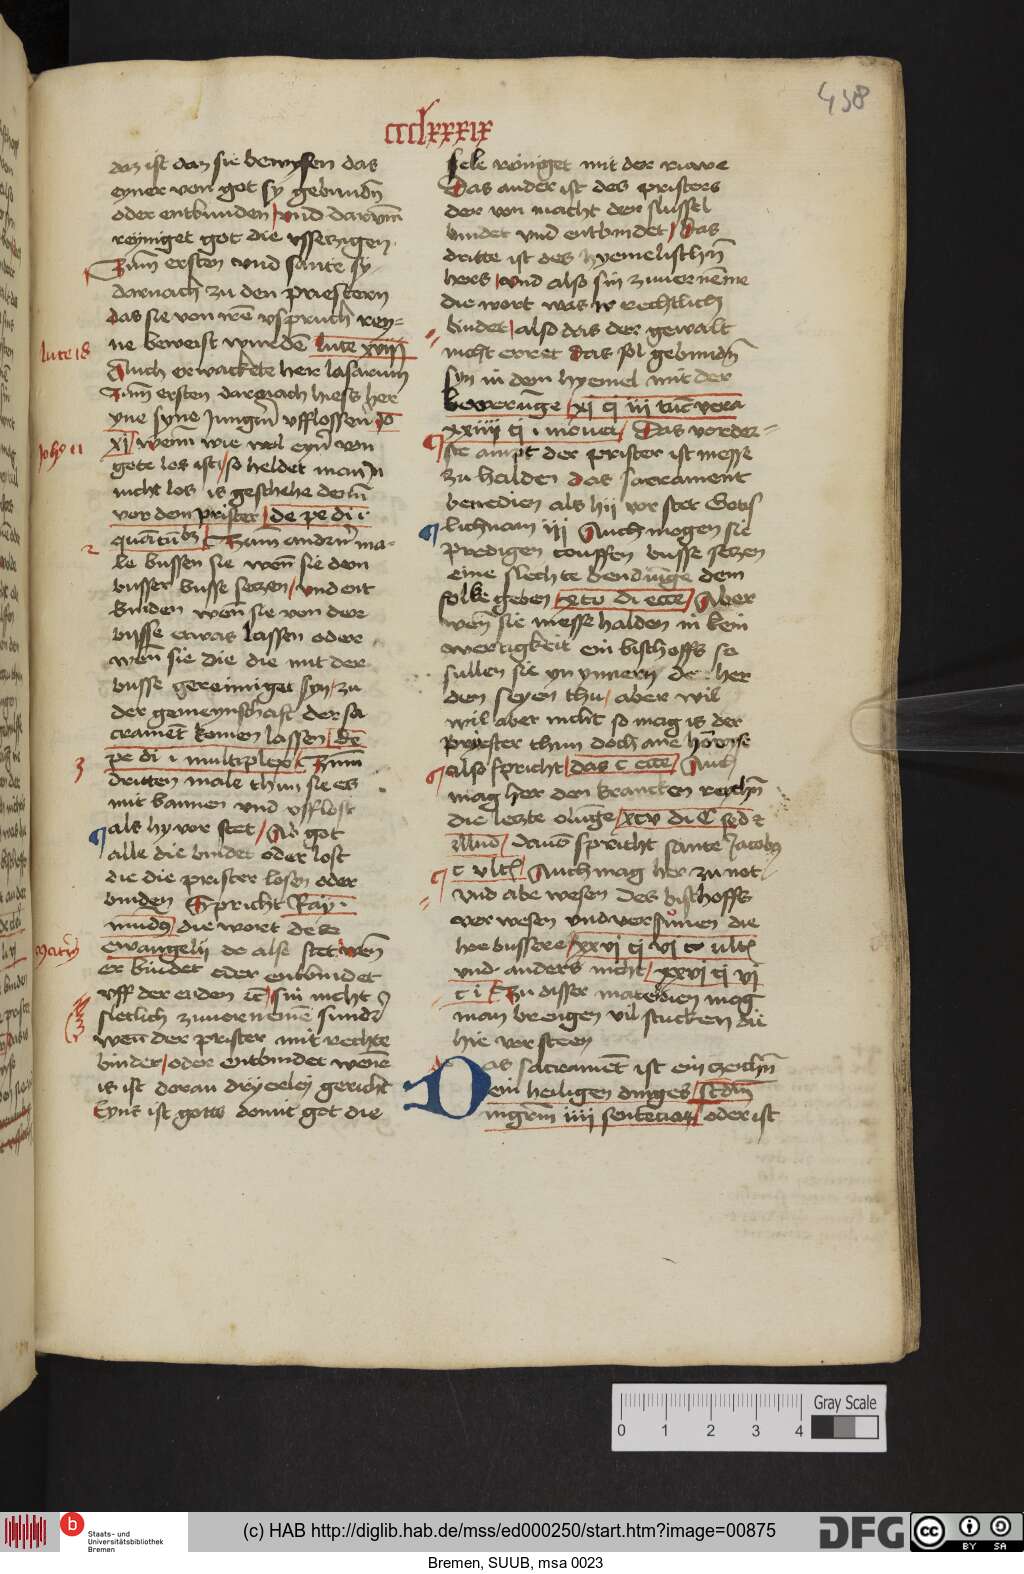 438
ccclxxxix
daz ist daz sie bewysen das
eyner von got sy gebundn̄
oder entbunden / und darum̄
reyniget got die vssetzigen.
Zum̄ ersten und sante sy
darnach zu den priestern
das sie von irē vspruch rey=
ne beweist wurdē luce xviij
luce 18
Auch erwackete her lasarum
Zum̄ ersten darnach hiess her
yne syne Jungern vfflossen Jo
xj / wenn wie wol eyn̄ von
Joħ 11
gote los ist / so heldet man in
nicht los is geschehe denn̄
vor dem prister / de pe di i
quatub3 Zum andern̄ ma-
2
le bussen sie wen̄ sie den
busser busse setzen / und ent
binden wen̄ sie von der
busse etwas lassen oder
wen̄ sie die die mit der
busse gereiniget syn / zu
der gemeynschaft der sa
cramēt komen lassen / de
pe di i multiplex Zum̄
3
dritten male thun sie es
mit bannen und vfflost
als hy vor stet / Ab got
alle die bindet oder lost
die die prister losen oder
binden Spricht Ray
mūdꝰ die wort des
ewangelij de alse stet wen̄
Mathꝰ
er bindet oder entbindet
vff der erden ic̄ / sin nicht
sletlich zuvernemē sundꝰ
wen der prister mit rechte
bindet / oder entbindet wenē
is ist doran dryerley gericht
Eyns ist gotis domit got die
sele reiniget mit der ruwe
Das ander ist des pristers
der von macht der slussel
bindet und entbindet / Das
dritte ist des hyemelischn̄
hers / und also sin zuvernēme
die wort was ir rechtlich
bindet / also das der gewalt
nicht erret das sol gebundn̄
syn in dem hyemel mit der
bewerūge / xj q iij tūc vera
xxiiij q i mouet / Das vorder=
ste ampt der prister ist messe
zu halden das sacrament
benedien als hij vor stet Gotis
lichnam iij Auch mogen sie
predigen touffen busse setzen
eine slechte bendiūge dem
folke geben / xcv di ecce / Aber
wen̄ sie messe halden in kein
wertigkeit ein bischoffs so
sullen sie yn ynnern der her
den seyen thu / aber wil
wil aber nicht so mag is der
priester thun doch ane hoenyse
also spricht / das c ecce / Auch
mag her den krancken reichn̄
die lezte olunge / xcv di C sed z
illud / davō spricht sante Jacobꝰ
c ultꝰ / Auch mag her zu not
und abe wesen des bischoffs
ver wesen und versumen die
hoe bussere / xxvi q vj cv ultꝰ
und anders nicht / xxvj q vj
c i Zu disser materien mag
man brengen vil stucken die
hie vor steen
Das sacramēt ist ein zeichn̄
ein heiligen dinges / scdm̄
mgrm̄ iiij sentenciaꝝ oder ist
0 1 2 3 4
Gray Scale
Staats- und
Universitätsbibliothek
Bremen
(c) HAB http://diglib.hab.de/mss/ed000250/start.htm?image=00875
DFG
cc BY SA
Bremen, SUUB, msa 0023